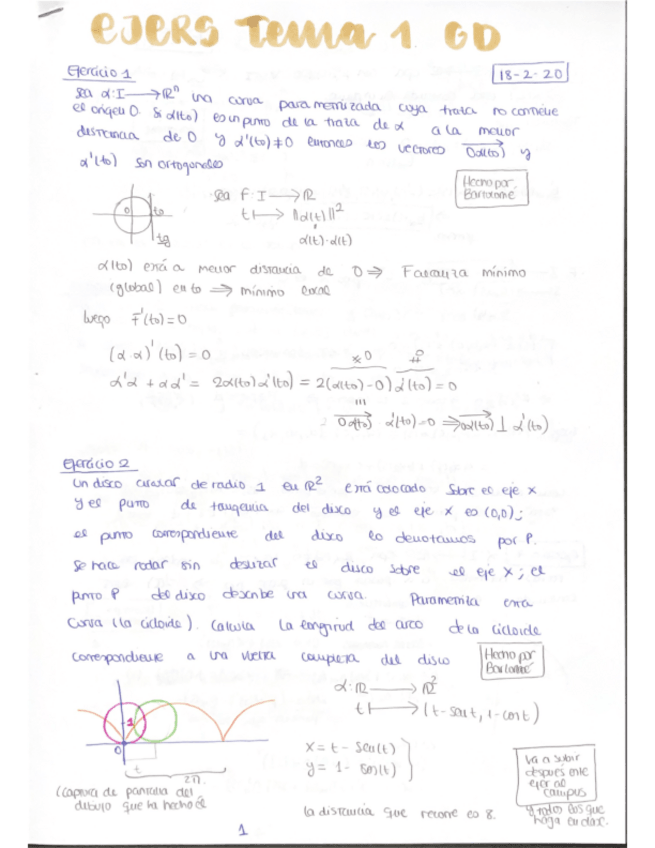 EJERS Tema 1 GD
Ejercicio 1
18-2-20
Sea α: I → ℝⁿ una curva parametrizada cuya traza no contiene
el origen O. Si α(to) es un punto de la traza de α a la menor
distancia de O y α'(to) ≠ 0 entonces los vectores Oα(to) y
α'(to) son ortogonales
Hecho por Bartolomé
0 to
tg
Sea f: I → ℝ
t ↦ ||α(t)||²
α(t)·α(t)
α(to) está a menor distancia de O ⇒ F alcanza mínimo
(global) en to ⇒ mínimo local
luego F'(to) = 0
(α·α)'(to) = 0
α'α + αα' = 2α(to)α'(to) = 2(α(to)-0)α'(to) = 0
Oα(to) · α'(to) = 0 ⇒ Oα(to) ⊥ α'(to)
Ejercicio 2
Un disco circular de radio 1 en ℝ² está colocado sobre el eje x
y el punto de tangencia del disco y el eje x es (0,0);
el punto correspondiente del disco lo denotamos por P.
Se hace rodar sin deslizar el disco sobre el eje x; el
punto P del disco describe una curva. Parametriza esta
curva (la cicloide). Calcula la longitud del arco de la cicloide
correspondiente a una vuelta completa del disco
Hecho por Bartolomé
α: ℝ → ℝ²
t ↦ (t - sen t, 1 - cos t)
1
0
t
2π
x = t - sen(t)
y = 1 - cos(t)
(captura de pantalla del
dibujo que ha hecho él
la distancia que recorre es 8.
Va a subir
después este
ejer al
campus
y todos los que
haga en clase.
1